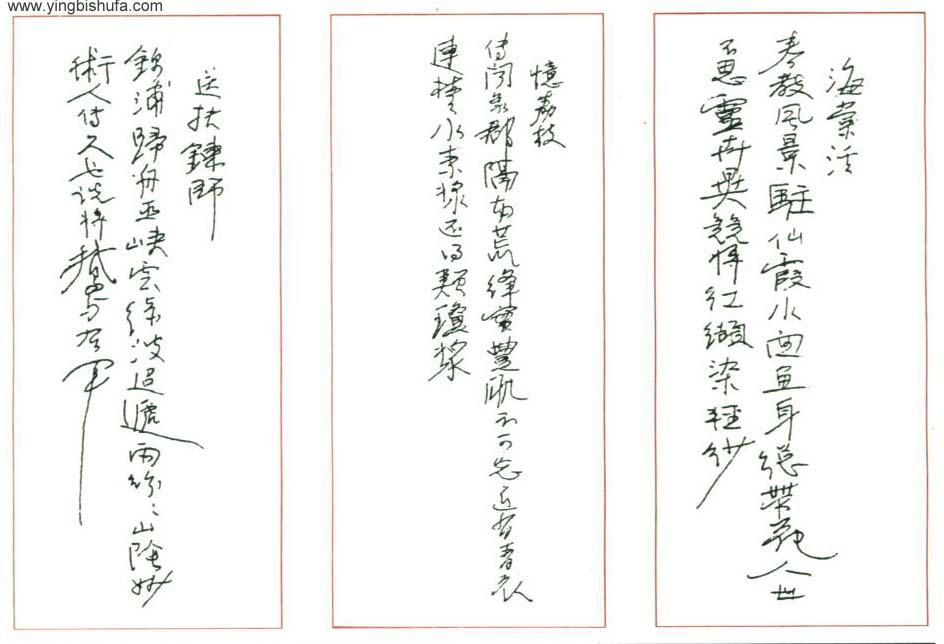 www.yingbishufa.com
海棠溪
春教風景駐仙霞水面魚身總帶花人世
不思靈卉異競將紅纈染輕紗
憶荔枝
傳聞象郡隔南荒絳實豐肌不可忘近有青衣
連楚水素漿还得類瓊漿
送扶鍊師
錦浦歸舟巫峽雲緑波迢遞雨紛〻山陰妙
術人傳久也說將鵝与右軍